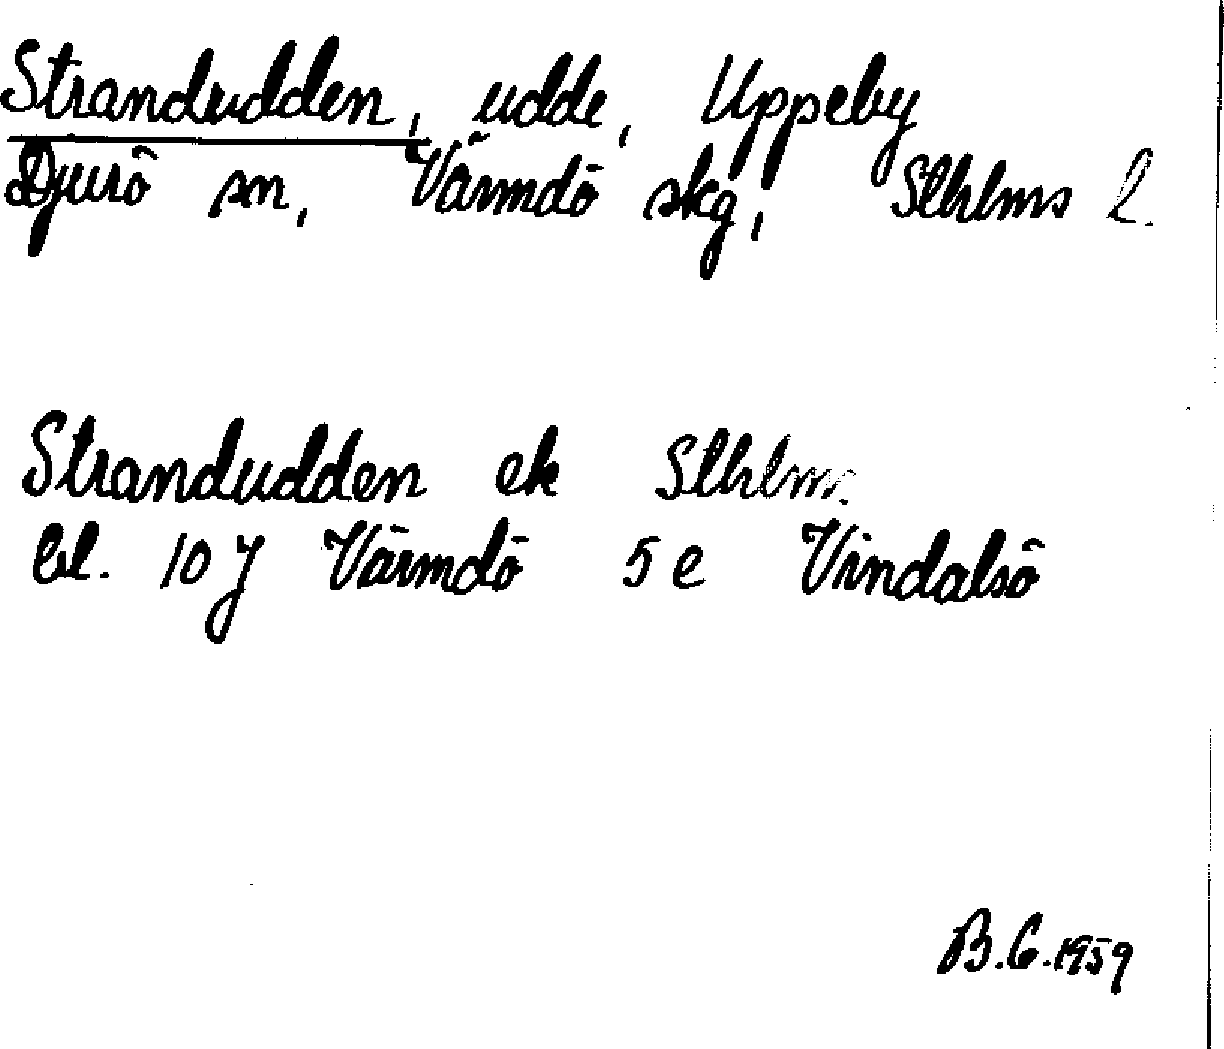 Strandudden, udde, Uppeby
Djurö sn, Värmdö skg, Sthlms l.
Strandudden ek Sthlms
bl. 10 J Värmdö 5 e Vindalsö
B.G. 1959